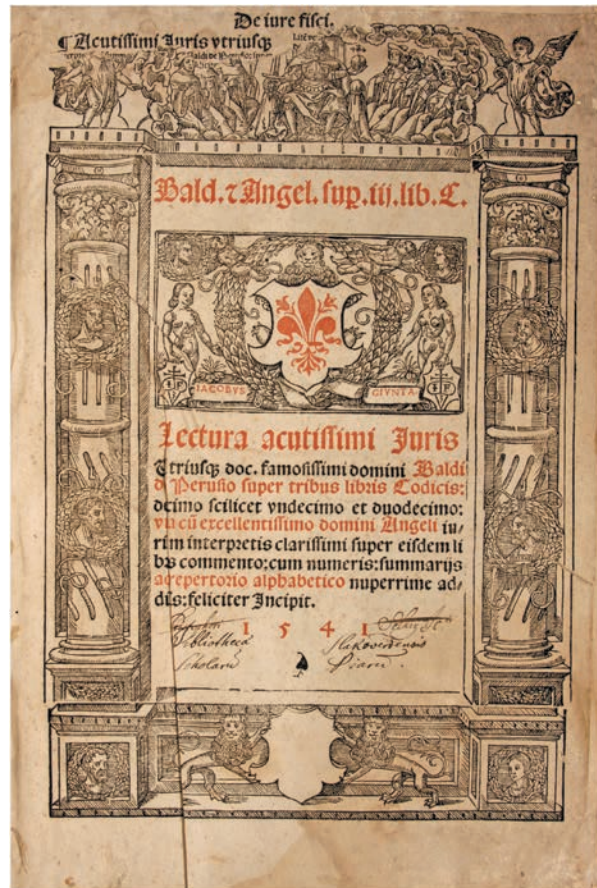 De iure fisci.
¶ Acutissimi Juris vtriusqꝫ
Bald. ⁊ Angel. sup. iij. lib. C.
IACOBVS GIVNTA.
Lectura acutissimi Juris
Utriusqꝫ doc. famosissimi domini Baldi
d Perusio super tribus libris Codicis:
decimo scilicet vndecimo et duodecimo:
vna cū excellentissimo domini Angeli iu/
rim interpretis clarissimi super eisdem li
bris commento: cum numeris: summarijs
ac repertorio alphabetico nuperrime ad/
ditis: feliciter Incipit.
1 5 4 1
Bibliotheca
Scholarū Piarū.